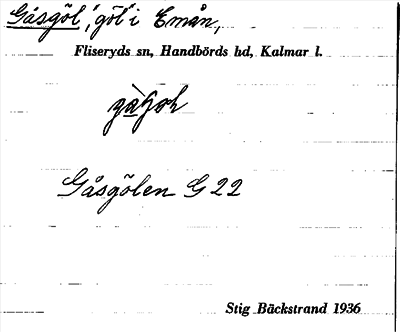 Gåsgöl, 'göl' i Emån,
Fliseryds sn, Handbörds hd, Kalmar l.
Gåsgölen G 22
Stig Bäckstrand 1936